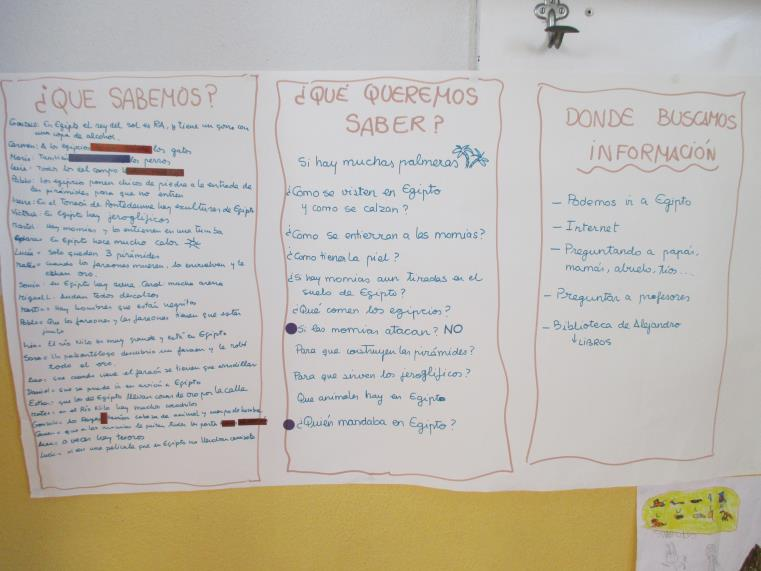 ¿QUE SABEMOS?
Gonzalo: En Egipto el rey del sol es RA, y tiene un gorro con
una copa de alcohol.
Carmen: A los egipcios los gatos
María: También los perros
Todos los del campo
Pablo: Los egipcios ponen chicos de piedra a la entrada de
las pirámides para que no entren
Irene: En el Torreón de Pontedeume hay esculturas de Egipto
Victoria: En Egipto hay jeroglíficos
Hay momias y las entierran en una tumba
En Egipto hace mucho calor
Lucía: Solo quedan 3 pirámides
Mateo: Cuando los faraones mueren, lo envuelven y le
echan oro.
en Egipto hay arena. Caral mucha arena
Miguel: andan todos descalzos
Martín: Hay hombres que están negritos
Pablo: Que los faraones y las faraonas tienen que estar
juntos
El río Nilo es muy grande y está en Egipto
Sara: Un paleontólogo descubrió un faraón y le robó
todo el oro.
que cuando viene el faraón se tienen que arrodillar
Daniel: que se puede ir en avión a Egipto
Esther: que los de Egipto llevan cosas de oro por la calle
Mateo: en el Río Nilo hay muchos cocodrilos
Gonzalo: Los tenían cabeza de animal y cuerpo de hombre
que a las momias le quitan todas las partes
a veces hay tesoros
Lucía: vi en una película que en Egipto no llevaban camiseta
¿QUÉ QUEREMOS
SABER?
Si hay muchas palmeras
¿Como se visten en Egipto
y como se calzan?
¿Como se entierran a las momias?
¿Como tienen la piel?
¿Si hay momias aun tiradas en el
suelo de Egipto?
¿Qué comen los egipcios?
Si las momias atacan? NO
Para que construyen las pirámides?
Para que sirven los jeroglíficos?
Que animales hay en Egipto
¿Quién mandaba en Egipto?
DONDE BUSCAMOS
INFORMACIÓN
– Podemos ir a Egipto
– Internet
– Preguntando a papás,
mamás, abuelos, tíos...
– Preguntar a profesores
– Biblioteca de Alejandro
↳ LIBROS